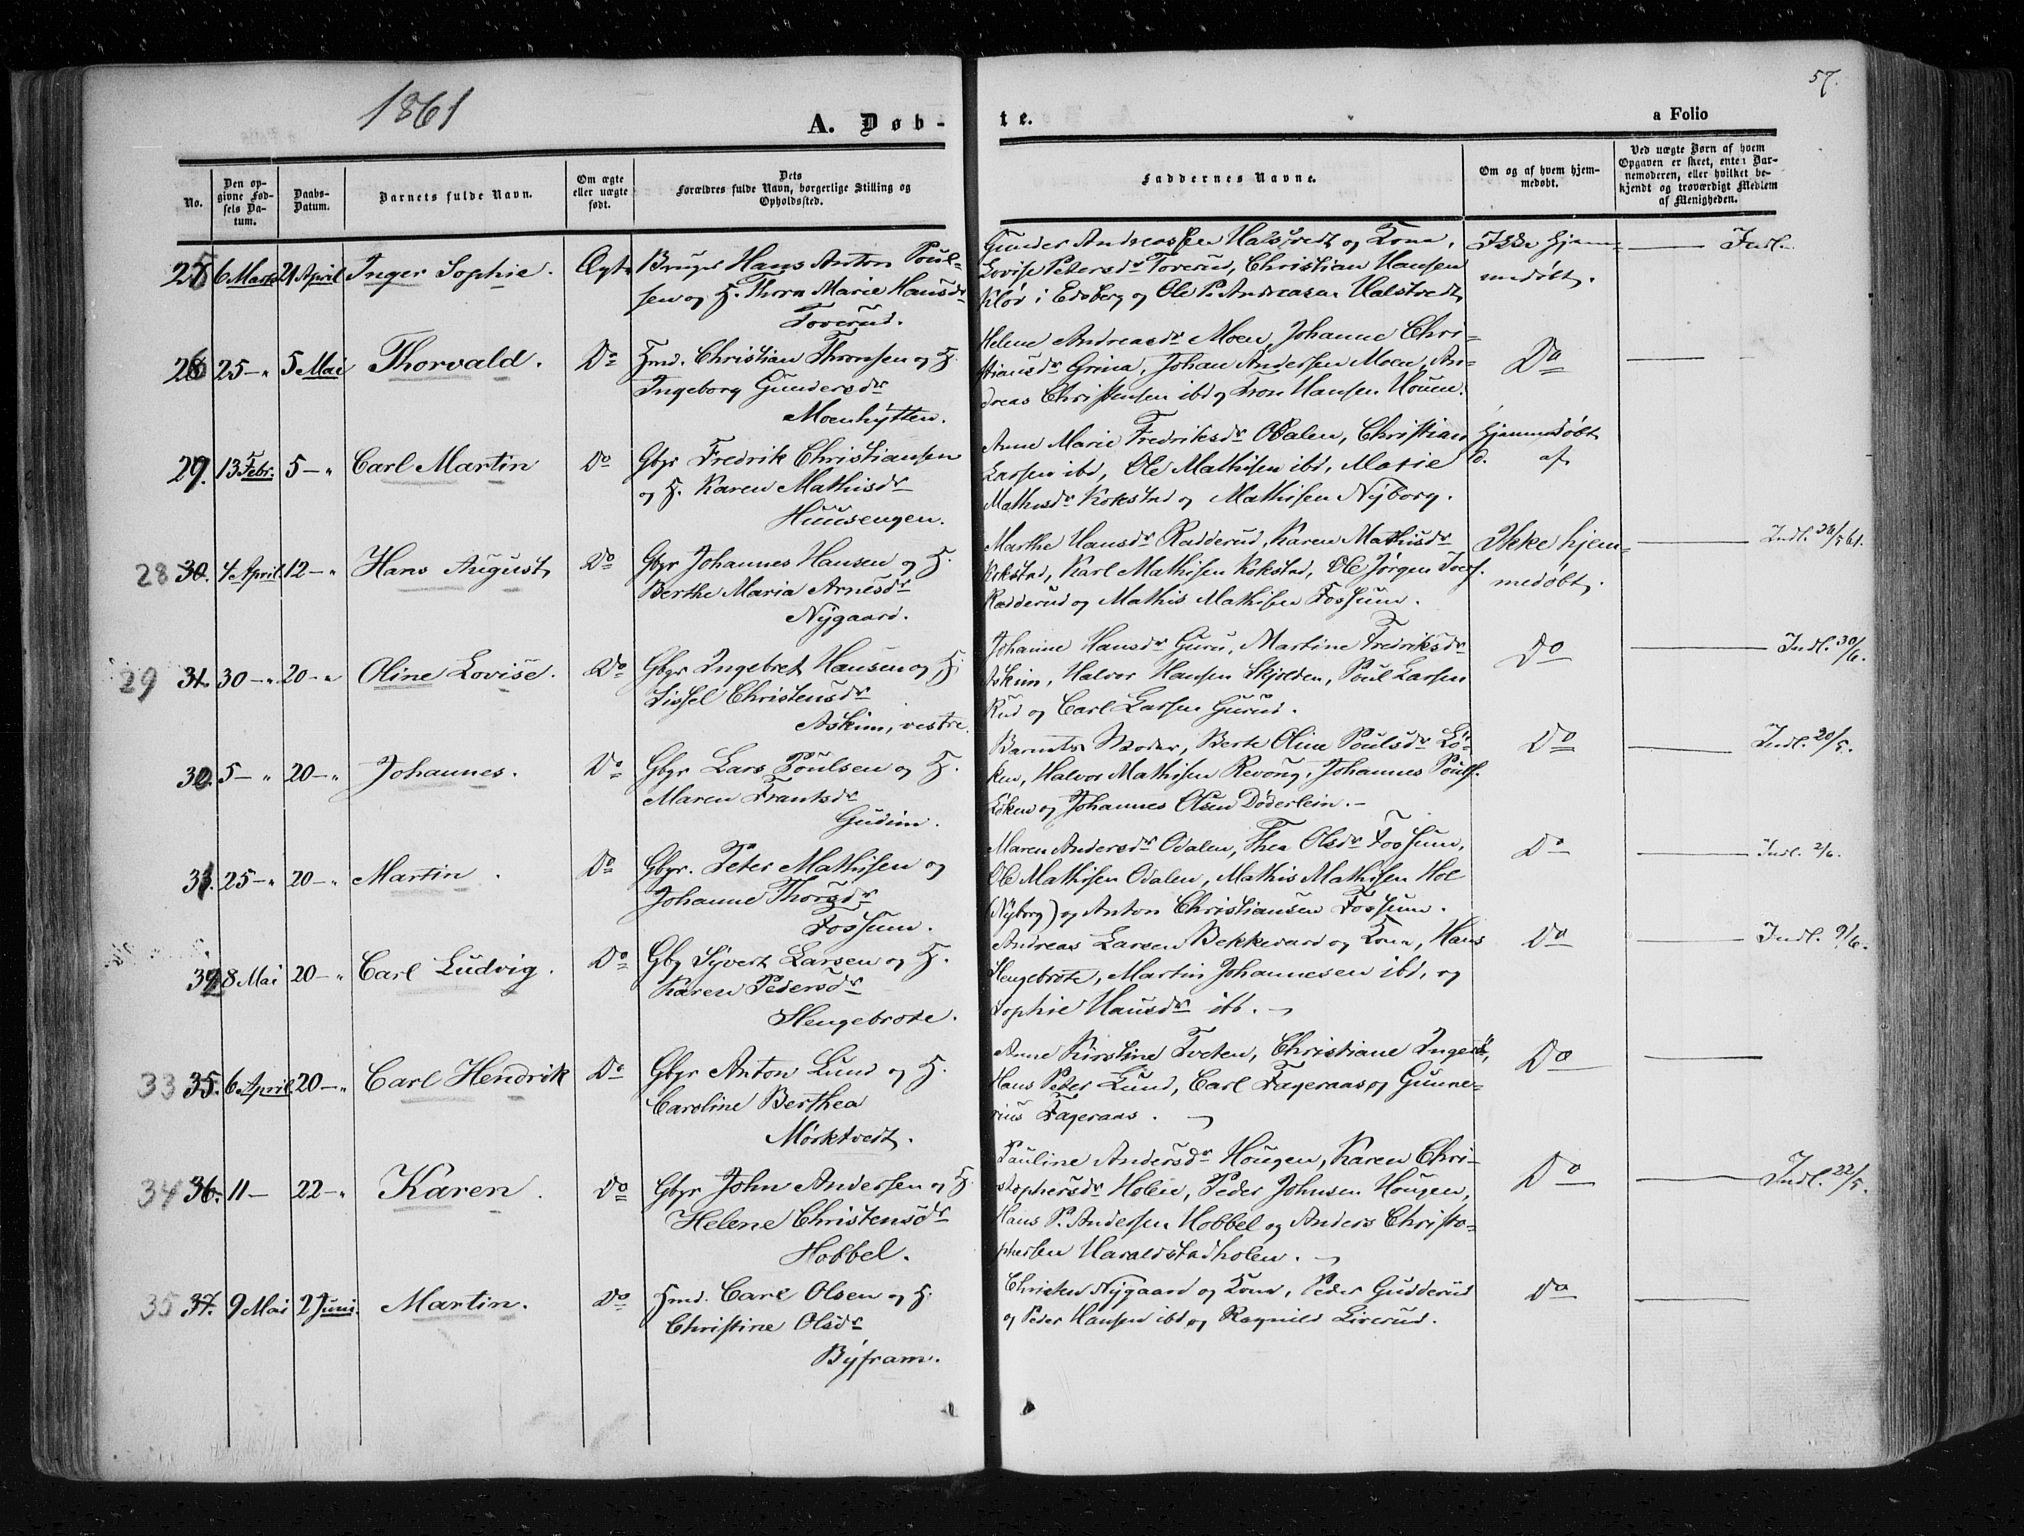 1861
57.
A. Døb-
te.
a Folio
No.
Den op-
givne Fød-
sels Da-
tum.
Daabs-
Datum.
Barnets fulde Navn.
Om ægte
eller uægte
født.
Dets
Forældres fulde Navn, borgerlige Stilling og
Opholdssted.
Faddernes Navne.
Om og af hvem hjem-
medøbt.
Ved uægte Børn af hvem
Opgaven er skeet, enten Bar-
nemoderen, eller hvilket be-
kjendt og troværdigt Medlem
af Menigheden.
6 Marts 21 April Inger Sophie. Ægte Bruger Hans Anton Poul-
sen og H. Thora Marie Hansdr
Toverud.
Gunder Andreassen Halstvedt og Kone,
Lovise Petersdr Toverud, Christian Hansen
i Edsberg og Ole P. Andreasen Halstvedt
Ikke hjem-
medøbt.
Indl.
25 — " 5 Mai Thorvald. Do Hmd. Christian Thronsen og H.
Ingeborg Gundersdr
Moenhytten.
Helene Andreasdr Moen, Johanne Chri-
stiansdr Grina, Johan Andersen Moen, An-
dreas Christensen ibd og Tron Hansen Mouen.
Do
29. 13 Febr. 5 — " Carl Martin Do Gbr Fredrik Christiansen
og H. Karen Mathisdr
Huusengen.
Anne Marie Fredriksdr Odalen, Christian
Larsen ibd, Ole Mathisen ibd, Marie
Mathisdr Kokstad og Mathisen Nyborg.
Hjemmedøbt
af
28 30. 4 April 12 — " Hans August Do Gbr Johannes Hansen og H.
Berthe Maria Arnesdr
Nygaard.
Marthe Hansdr Radderud, Karen Mathisdr
Kokstad, Karl Mathisen Kokstad, Ole Jørgen
Radderud og Mathis Mathisen Fossum.
Ikke hjem-
medøbt.
Indl. 26/5 61.
29 31. 30 — " 20 — " Oline Lovise. Do Gbr Ingebret Hansen og H.
Sissel Christensdr
Askim, vestre.
Johanne Hansdr Guru, Martine Fredriksdr
Askim, Halvor Hansen Skjolden, Poul Larsen
Rud og Carl Larsen Gurud.
Do
Indl. 30/6.
5 — " 20 — " Johannes. Do Gbr Lars Poulsen og H.
Maren Frantsdr
Gudim.
Barnets Moder, Berte Oline Poulsdr Lø-
ken, Halvor Mathisen Revoug, Johannes Pouls.
Løken og Johannes Olsen Døderlein. —
Do
Indl. 20/5.
25 — " 20 — " Martin. Do Gbr. Peter Mathisen og
Johanne Thorsdr
Fossum.
Maren Andersdr Odalen, Thea Olsdr Fossum,
Ole Mathisen Odalen, Mathis Mathisen Hol
(Nyborg) og Anton Christiansen Fossum.
Do
Indl. 2/6.
8 Mai 20 — " Carl Ludvig. Do Gbr Syvert Larsen og H.
Karen Pedersdr
Slengebrote.
Andreas Larsen Bekkevard og Kone, Hans
Slengebrote, Martin Johannesen ibd, og
Sophie Hansdr ibd. —
Do
Indl. 9/6.
33 35. 6 April 20 — " Carl Hendrik Do Gbr Anton Lund og H.
Caroline Berthea
Mørktvedt.
Anne Kirstine Tveten, Christiane Inger
Hans Peter Lund, Carl Fageraas og Gunne-
rius Fageraas. —
Do
34 36. 11 — 22 — " Karen. Do Gbr John Andersen og H.
Helene Christensdr
Hobbel.
Pauline Andersdr Hougen, Karen Chri-
stophersdr Holen, Peder Johnsen Hougen,
Hans P. Andersen Hobbel og Anders Christo-
phersen Haraldstadholen. —
Do
Indl. 22/5.
35 37. 9 Mai 2 Juni. Martin. Do Hmd. Carl Olsen og H.
Christine Olsdr
Byfram.
Christen Nygaard og Kone, Peder Gudderud
og Peder Hansen ibd og Ragnild Lirerud.
Do